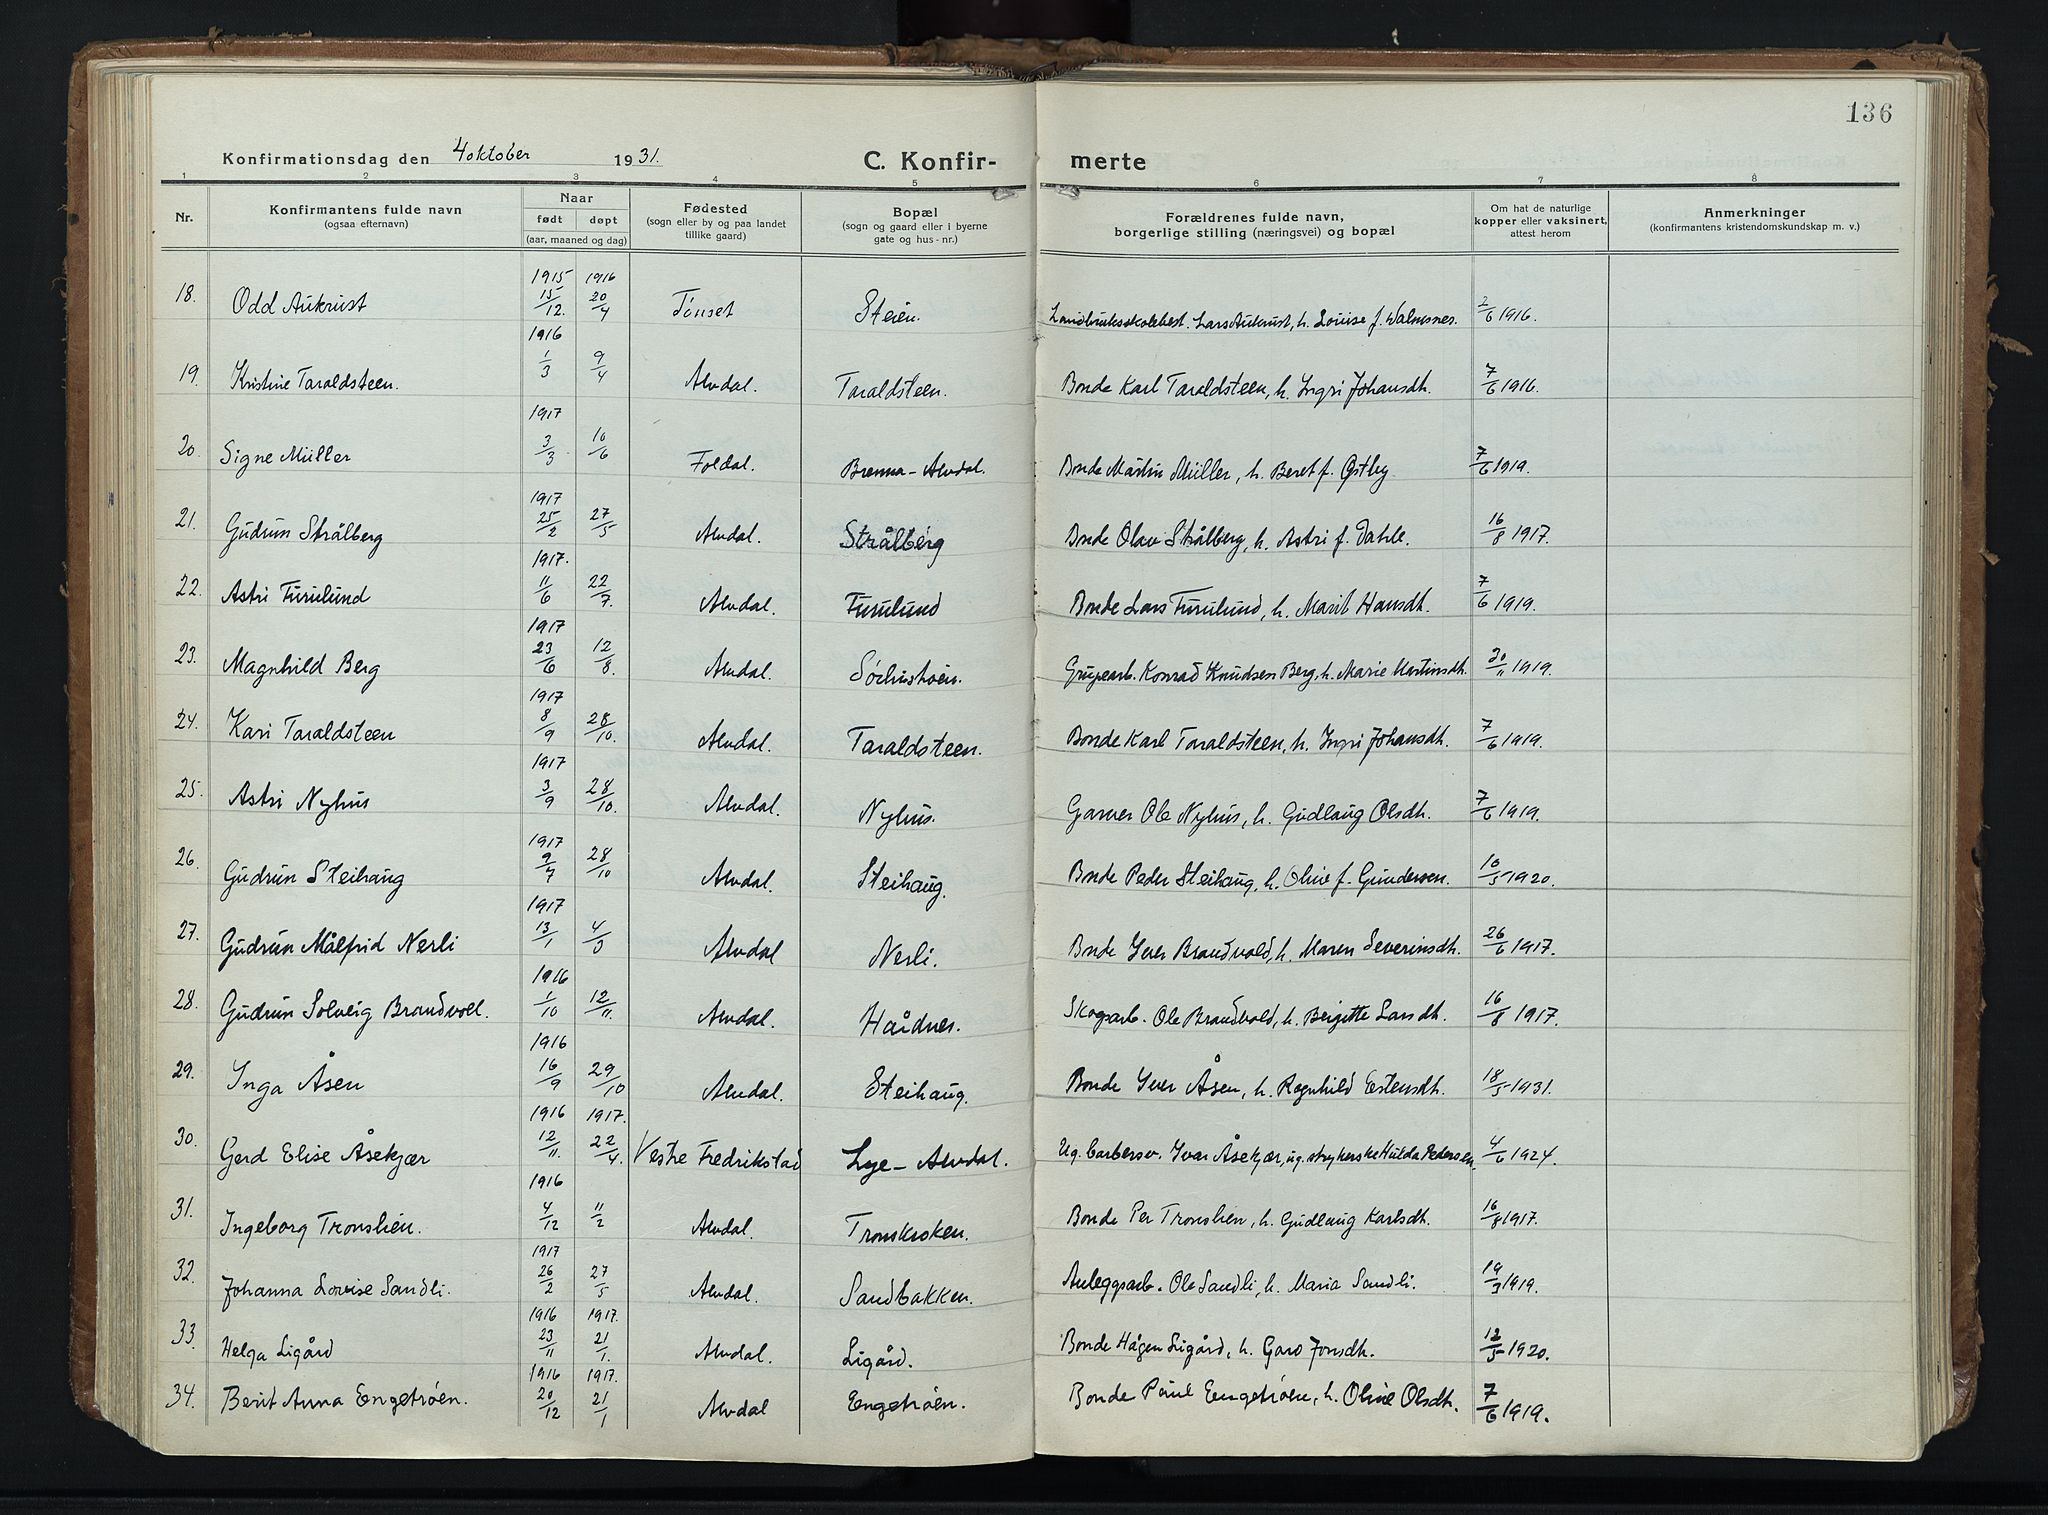 136
Konfirmationsdag den 4 oktober 1931.
C. Konfir- merte
1 2 3 4 5 6 7 8
Nr. | Konfirmantens fulde navn (ogsaa efternavn) | Naar født døpt (aar, maaned og dag) | Fødested (sogn eller by og paa landet tillike gaard) | Bopæl (sogn og gaard eller i byerne gate og hus-nr.) | Forældrenes fulde navn, borgerlige stilling (næringsvei) og bopæl | Om hat de naturlige kopper eller vaksinert, attest herom | Anmerkninger (konfirmantens kristendomskundskap m. v.)
18. Odd Aukrust 1915 15/12. 1916 20/4 Tönset Steien. Landbruksskolebest. Lars Aukrust, h. Louise f. Walmsnes. 2/6 1916.
19. Kristine Taraldsteen. 1916 1/3 9/4 Alvdal. Taraldsteen. Bonde Karl Taraldsteen, h. Ingri Johansdh. 7/6 1916.
20. Signe Müller 1917 3/3 10/6 Foldal. Brenna - Alvdal. Bonde Martin Müller, h. Beret f. Østby 7/6 1919.
21. Gudrun Strålberg 1917 25/2 27/5 Alvdal. Strålberg Bonde Olav Strålberg, h. Astri f. Dahle. 16/8 1917.
22. Astri Furulund 1917. 11/6 22/7. Alvdal. Furulund Bonde Lars Furulund, h. Marit Hansdh. 7/6 1919.
23. Magnhild Berg 1917 23/6 12/8. Alvdal. Gruvearb. Konrad Knudsen Berg, h. Marie Martinsdh. 20/11 1919.
24. Kari Taraldsteen 1917 8/9 28/10. Alvdal. Taraldsteen. Bonde Karl Taraldsteen, h. Ingri Johansdh. 7/6 1919.
25. Astri Nyhus 1917 3/9 28/10. Alvdal. Nyhus. Garver Ole Nyhus, h. Gudlaug Olsdh. 7/6 1919.
26. Gudrun Steihaug 1917 9/7 28/10 Alvdal. Steihaug. Bonde Peder Steihaug, h. Oline f. Gundersen. 10/5 1920.
27. Gudrun Målfrid Nerli 1917 13/1 4/3 Alvdal Nerli. Bonde Iver Brandvold, h. Maren Severinsdh. 26/6 1917.
28. Gudrun Solveig Brandvoll. 1916 1/10 12/11. Alvdal. Hårdnes. Skogsarb. Ole Brandvold, h. Birgitte Larsdh. 16/8 1917.
29. Inga Åsen 1916 16/9 29/10 Alvdal. Steihaug. Bonde Iver Åsen, h. Ragnhild Estensdh. 18/5 1931.
30. Gerd Elise Åsekjær 1916 12/11. 1917. 22/4. Vestre Fredrikstad Lye - Alvdal. Ug. barbersv. Ivar Åsekjær, ug. strykerske Hulda Pedersen. 4/6 1924.
31. Ingeborg Tronslien. 1916 4/12 11/2 Alvdal. Tronskroken. Bonde Per Tronslien, h. Gudlaug Karlsdh. 16/8 1917.
32. Johanna Lovise Sandli. 1917 26/2 27/5 Alvdal. Sandbakken. Anleggsarb. Ole Sandli, h. Maria Sandli. 19/3 1919.
33. Helga Ligård 1916 23/11 1917. 21/1. Alvdal. Ligård. Bonde Hågen Ligård, h. Garo Jonsdh. 12/5 1920.
34. Berit Anna Engetröen. 1916 20/12 1917. 21/1 Alvdal Engetröen. Bonde Paul Engetröen, h. Oline Olsdh. 7/6 1919.